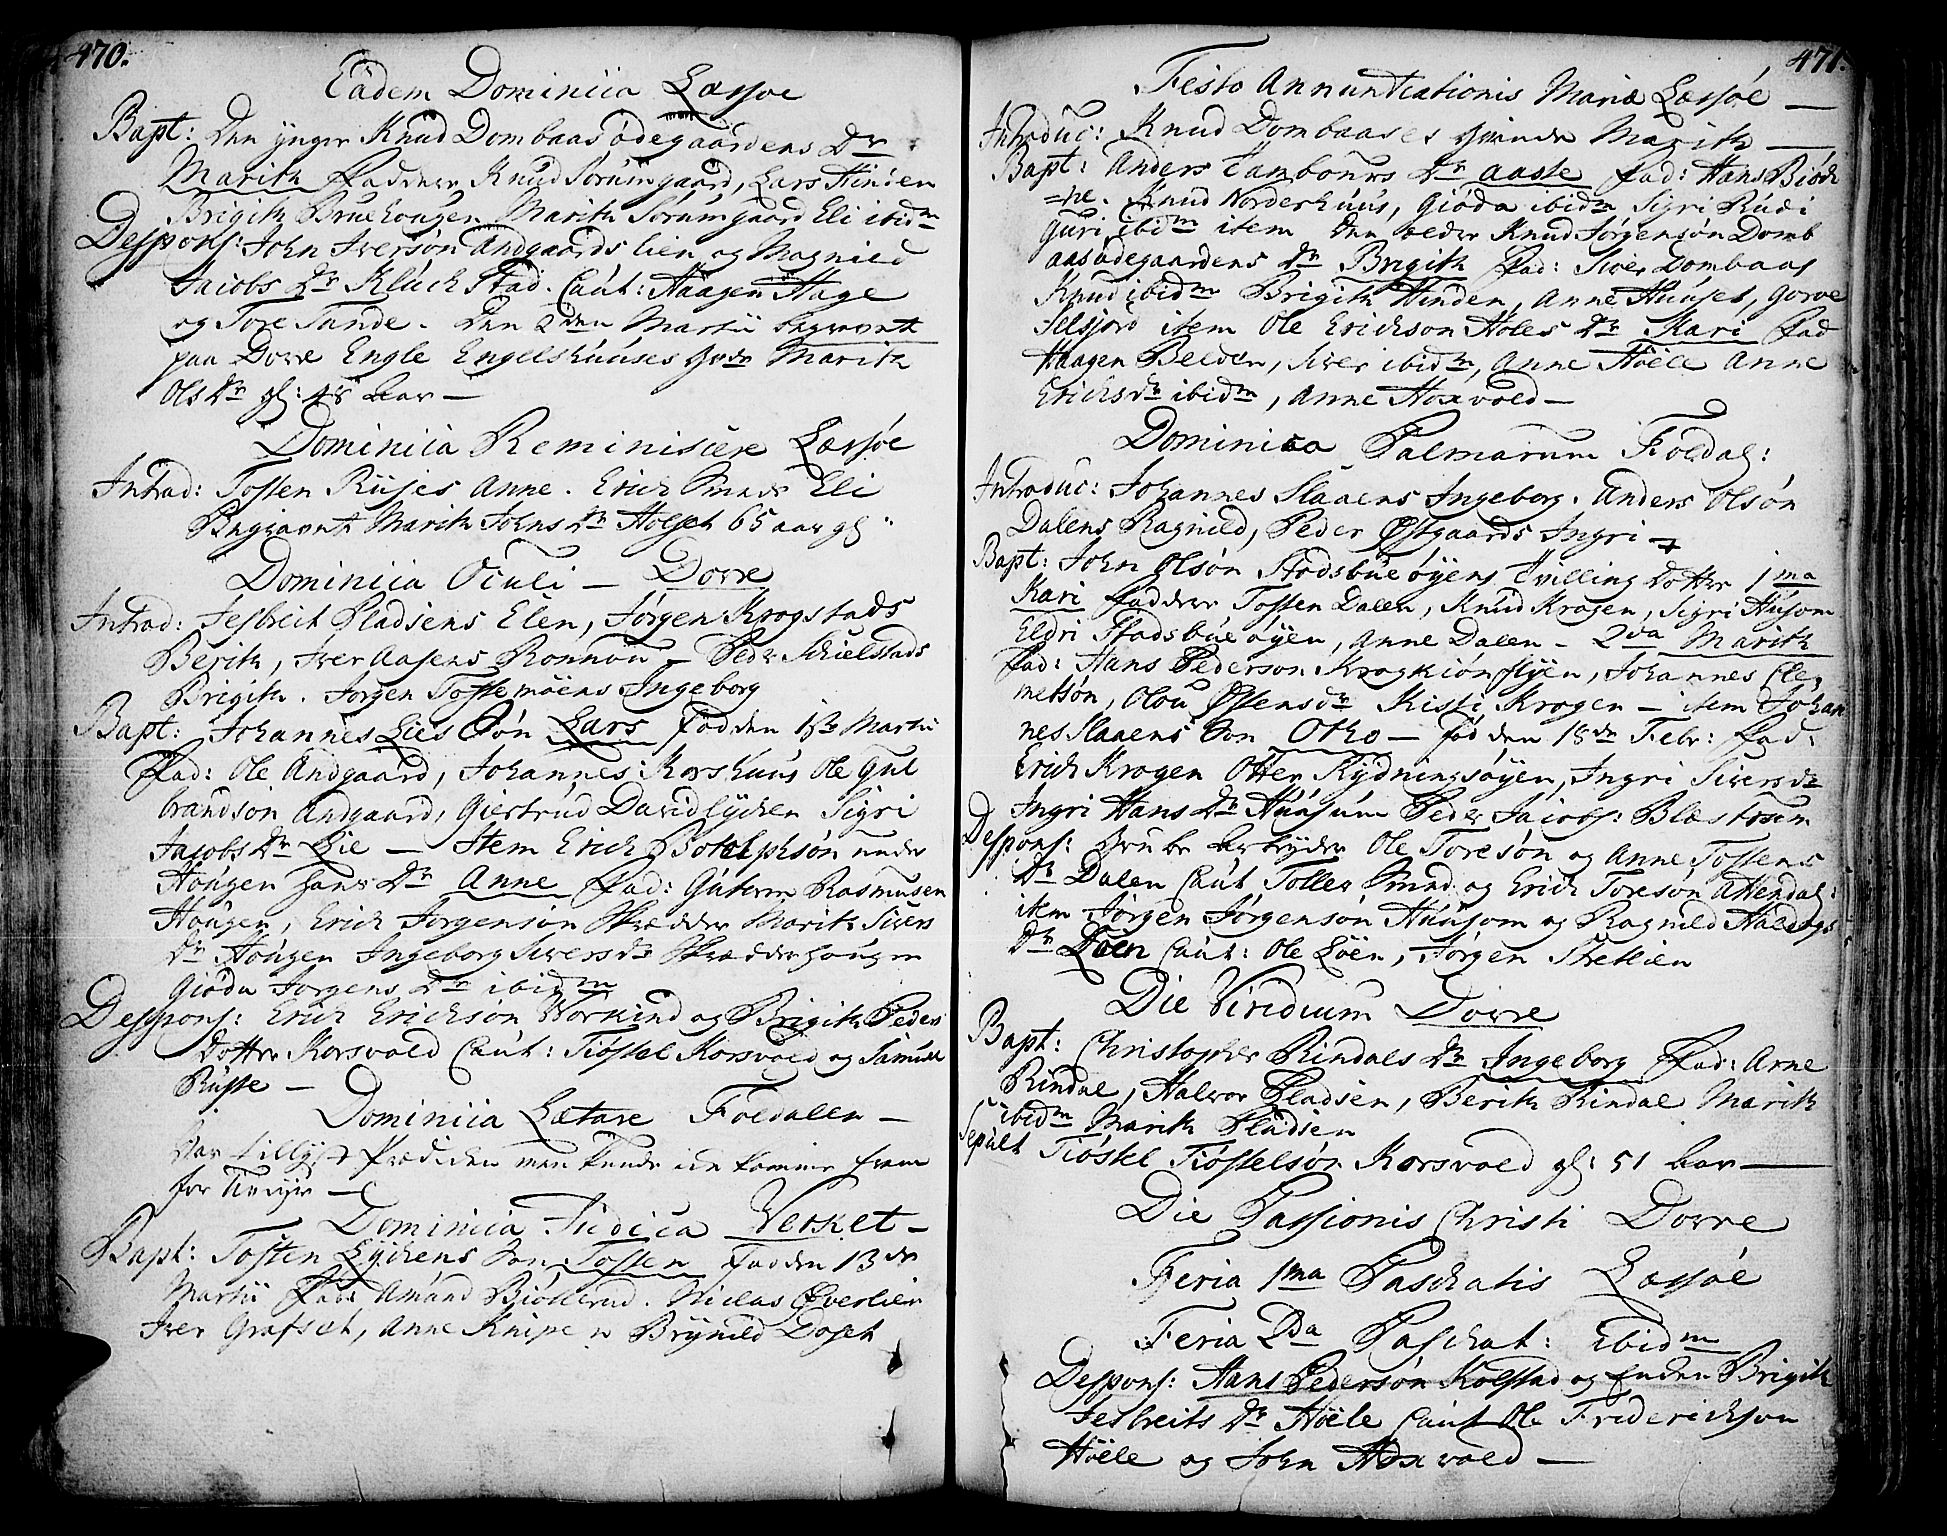 470.
Eâdem Dominiia Læssøe
Bapt: Den ynger Knud Dombaas ødegaardens Dr
Marith Faddere Knud Sørumgaard, Lars Hinden
Brigith Bruehougen Marith Sørumgaard Eli ibidm
Despons: John Iversøn Andgaardslien og Magnild
Jacobs Dr Kluchstad. Caut: Haagen Hage
og Tore Tande. Den 2den Martii begravet
paa Dovre Engle Engelshuuses Qvde Marith
Ols Dr gl: 48 Aar —
Dominiia Reminiscere Læssøe
Introd: Tosten Rusес Anne. Erich Smeds Eli
Begravet Marith Johns Dr Holset 65 aar gl:
Dominiia Oculi — Dovre
Introd: Jesbreit Pladsens Elen, Jørgen Krogstads
Berith, Iver Aasens Ronnou — Peder Schielstads
Brigith. Jørgen Tostemoens Ingeborg
Bapt: Johannes Lies Søn Lars fød den 1ste Martii
Fad: Ole Andgaard, Johannes Korshuus Ole Gul
brandsøn Andgaard, Giertrud Davidlychen Sigri
Jacobs Dr Lie — Item Erich Botolphsøn neder
Hougen hans Dr Anne Fad: Guttorm Rasmusen
Hougen, Erich Jørgensøn Skrædder Marith Sivers
Dr Hougen Ingeborg Sivers dr Skrædderhougen
Giøda Jørgens Dr ibidm
Despons: Erich Erichsøn Workind og Brigith Peders
Dotter Korsvold Caut: Tiøstel Korsvold og Samuel
Ruste —
Dominiia Lætare Foldalen —
Var tillyst Prædiken men kunde ike komme frem
for Uveyr —
Dominiia Judica Verket —
Bapt: Tosten Lychens Søn Tosten fød den 13de
Martii Fad: Amund Biøllerud. Niclas Øverlien
Iver Grafset, Anne Knipe Brynild Doset
471.
Festo Annuntiationis Mariæ Læssøe —
Introduc: Knud Dombaases Qvinde Marith —
Bapt: Anders Tambours Dr Aaste Fad: Hans Biøch
=ne. Knud Norderhuus, Giøda ibidm Sigri Rudi
Guri ibidm item Den ældre Knud Jørgensøn Domb
aasødegaardens Dr Brigith Fad: Siver Dombaas
Knud ibidm Brigith Hinden, Anne Huuses, Gorve
Selsjord item Ole Erichson Holes Dr Kari Fad
Haagen Belden, Siver ibidm, Anne Høele Anne
Erichsdr ibidm, Anne Hoxvold —
Dominica Palmarum Foldal:
Introduc: Johannes Slaaens Ingeborg. Anders Olsøn
Dalens Ragnild, Peder Østgaards Ingri
Bapt: John Olsøn Stadsbueøyens Tvilling Døttre 1ma
Kari Faddere Tosten Dalen, Knud Krogen, Sigri Husom
Eldri Stadsbueøyen, Anne Dalen — 2da Marith
Fad: Hans Pederson Krogkiønslyen, Johannes Cle,
metsøn, Olou Østensdr Kisti Krogen — item Johan
nes Slaaens Søn Otho — fød den 18de Febr: Fad:
Erich Krogen Otter Rydningsøyen, Ingri Siversdr
Ingri Hans Dr Huusum Peder Jacobs: Blæstrum
Despons: Grube Arbeyder Ole Toresøn og Anne Tostens
Dr Dalen Caut Toller Smed og Erich Toresøn Attendal:
item Jørgen Jørgensøn Huusom og Ragnild Haldogs
Dr Løen Caut: Ole Løen, Jørgen Stretlien
Die Viridium Dovre
Bapt: Christopher Rindals Dr Ingeborg Fad: Arne
Rindal, Halvor Pladsen, Berith Rindal Marith
ibidm Marith Pladsen
Sepult Tiøstel Tiøstelsøn Korsvold gl: 51 Aar —
Die Passionis Christi Dovre
Feria 1ma Paschatis Læssøe
Feria 2da Paschat: Ibidm
Despons: Hans Pedersøn Kolstad og Enken Brigith
Jesbreits Dr Høele Caut Ole Friderichson
Høele og John Hoxvold —